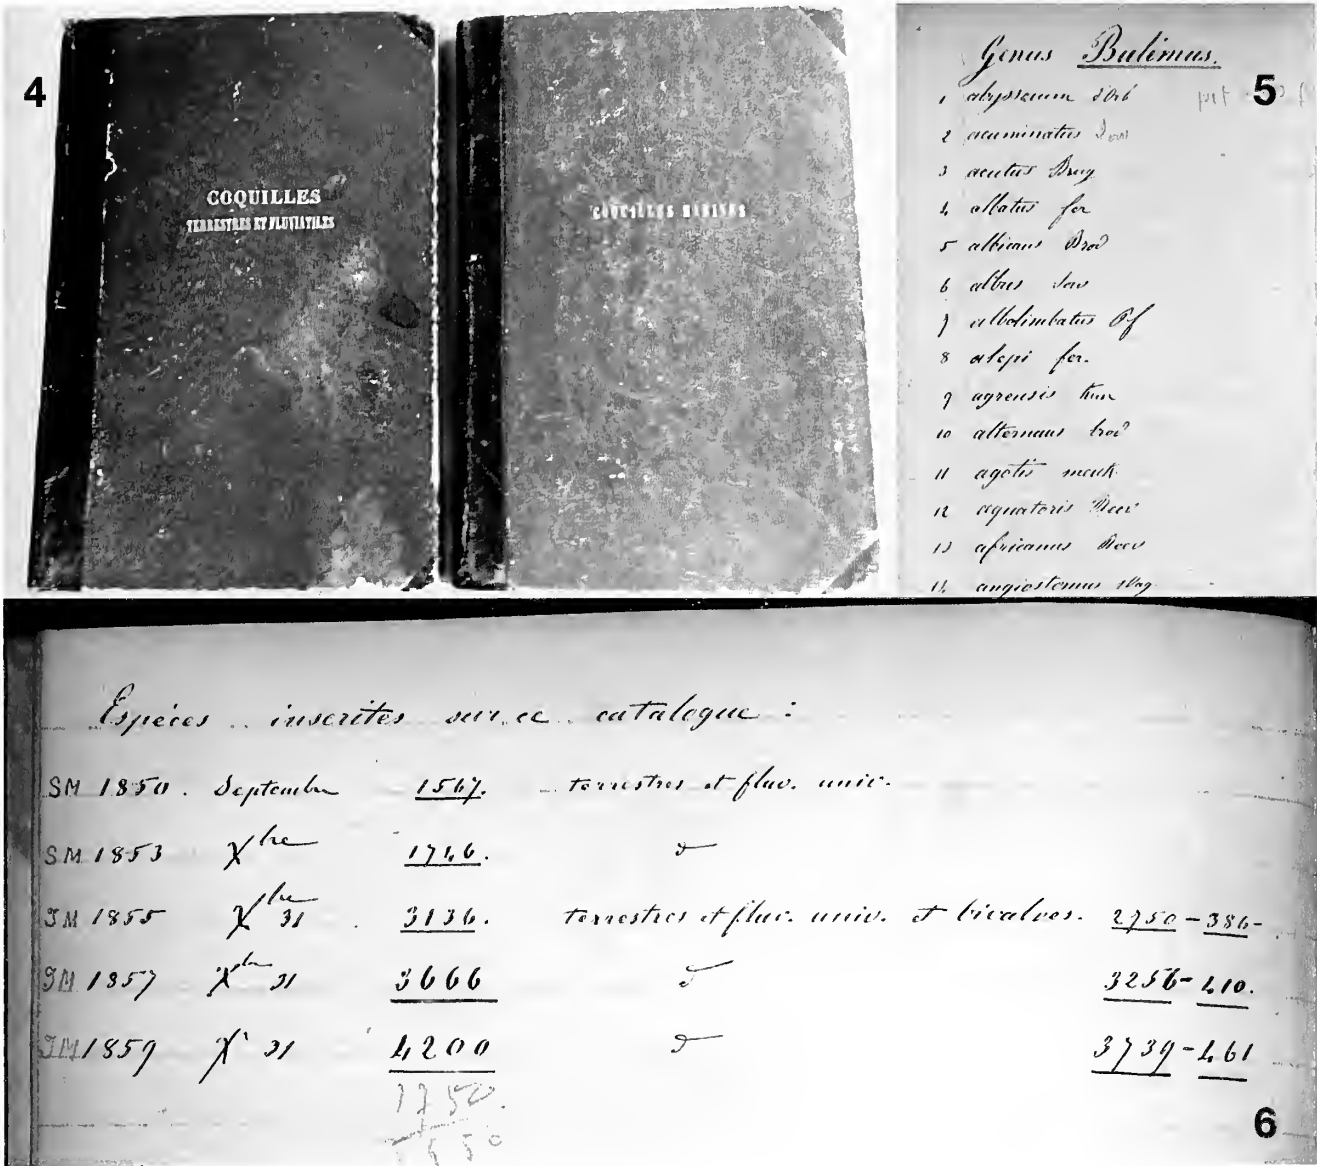 4
COQUILLES
TERRESTRES ET FLUVIATILES
COQUILLES MARINES
5
Genus Bulimus.
1 abyssorum d'Orb
2 acuminatus Sow
3 acutus Brug
4 albatus fer
5 albicans Brod
6 albus Sow
7 albolimbatus Pf
8 alopi fer.
9 agrensis
10 alternans brod
11 agotis menk
12 æquatoris Reev
13 africanus Reev
14 angiostomus Wag
Espèces inscrites sur ce catalogue :
SM 1850. Septembre 1567. terrestres et fluv. univ.
SM 1853 Xbre 1746. d°
JM 1855 Xbre 31 3136. terrestres et fluv. univ. et bivalves. 2750-386-
JM 1857 Xbre 31 3666 d° 3256-410.
JM 1859 X 31 4200 d° 3739-461
3750.
6